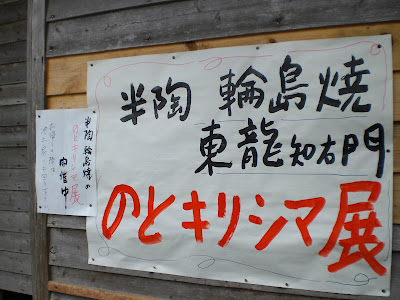 半陶 輪島焼
東龍知右門
のとキリシマ展
半陶 輪島焼の
のとキリシマ展